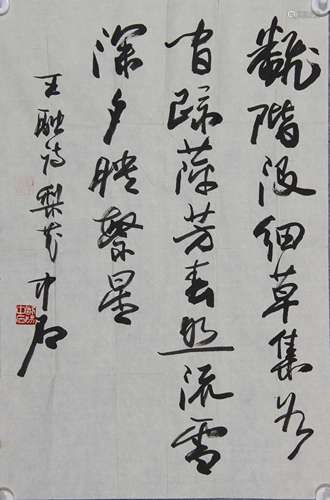 飜階没細草集水
間踈萍芳春照流雪
深夕暎繁星
王融诗梨花 中石